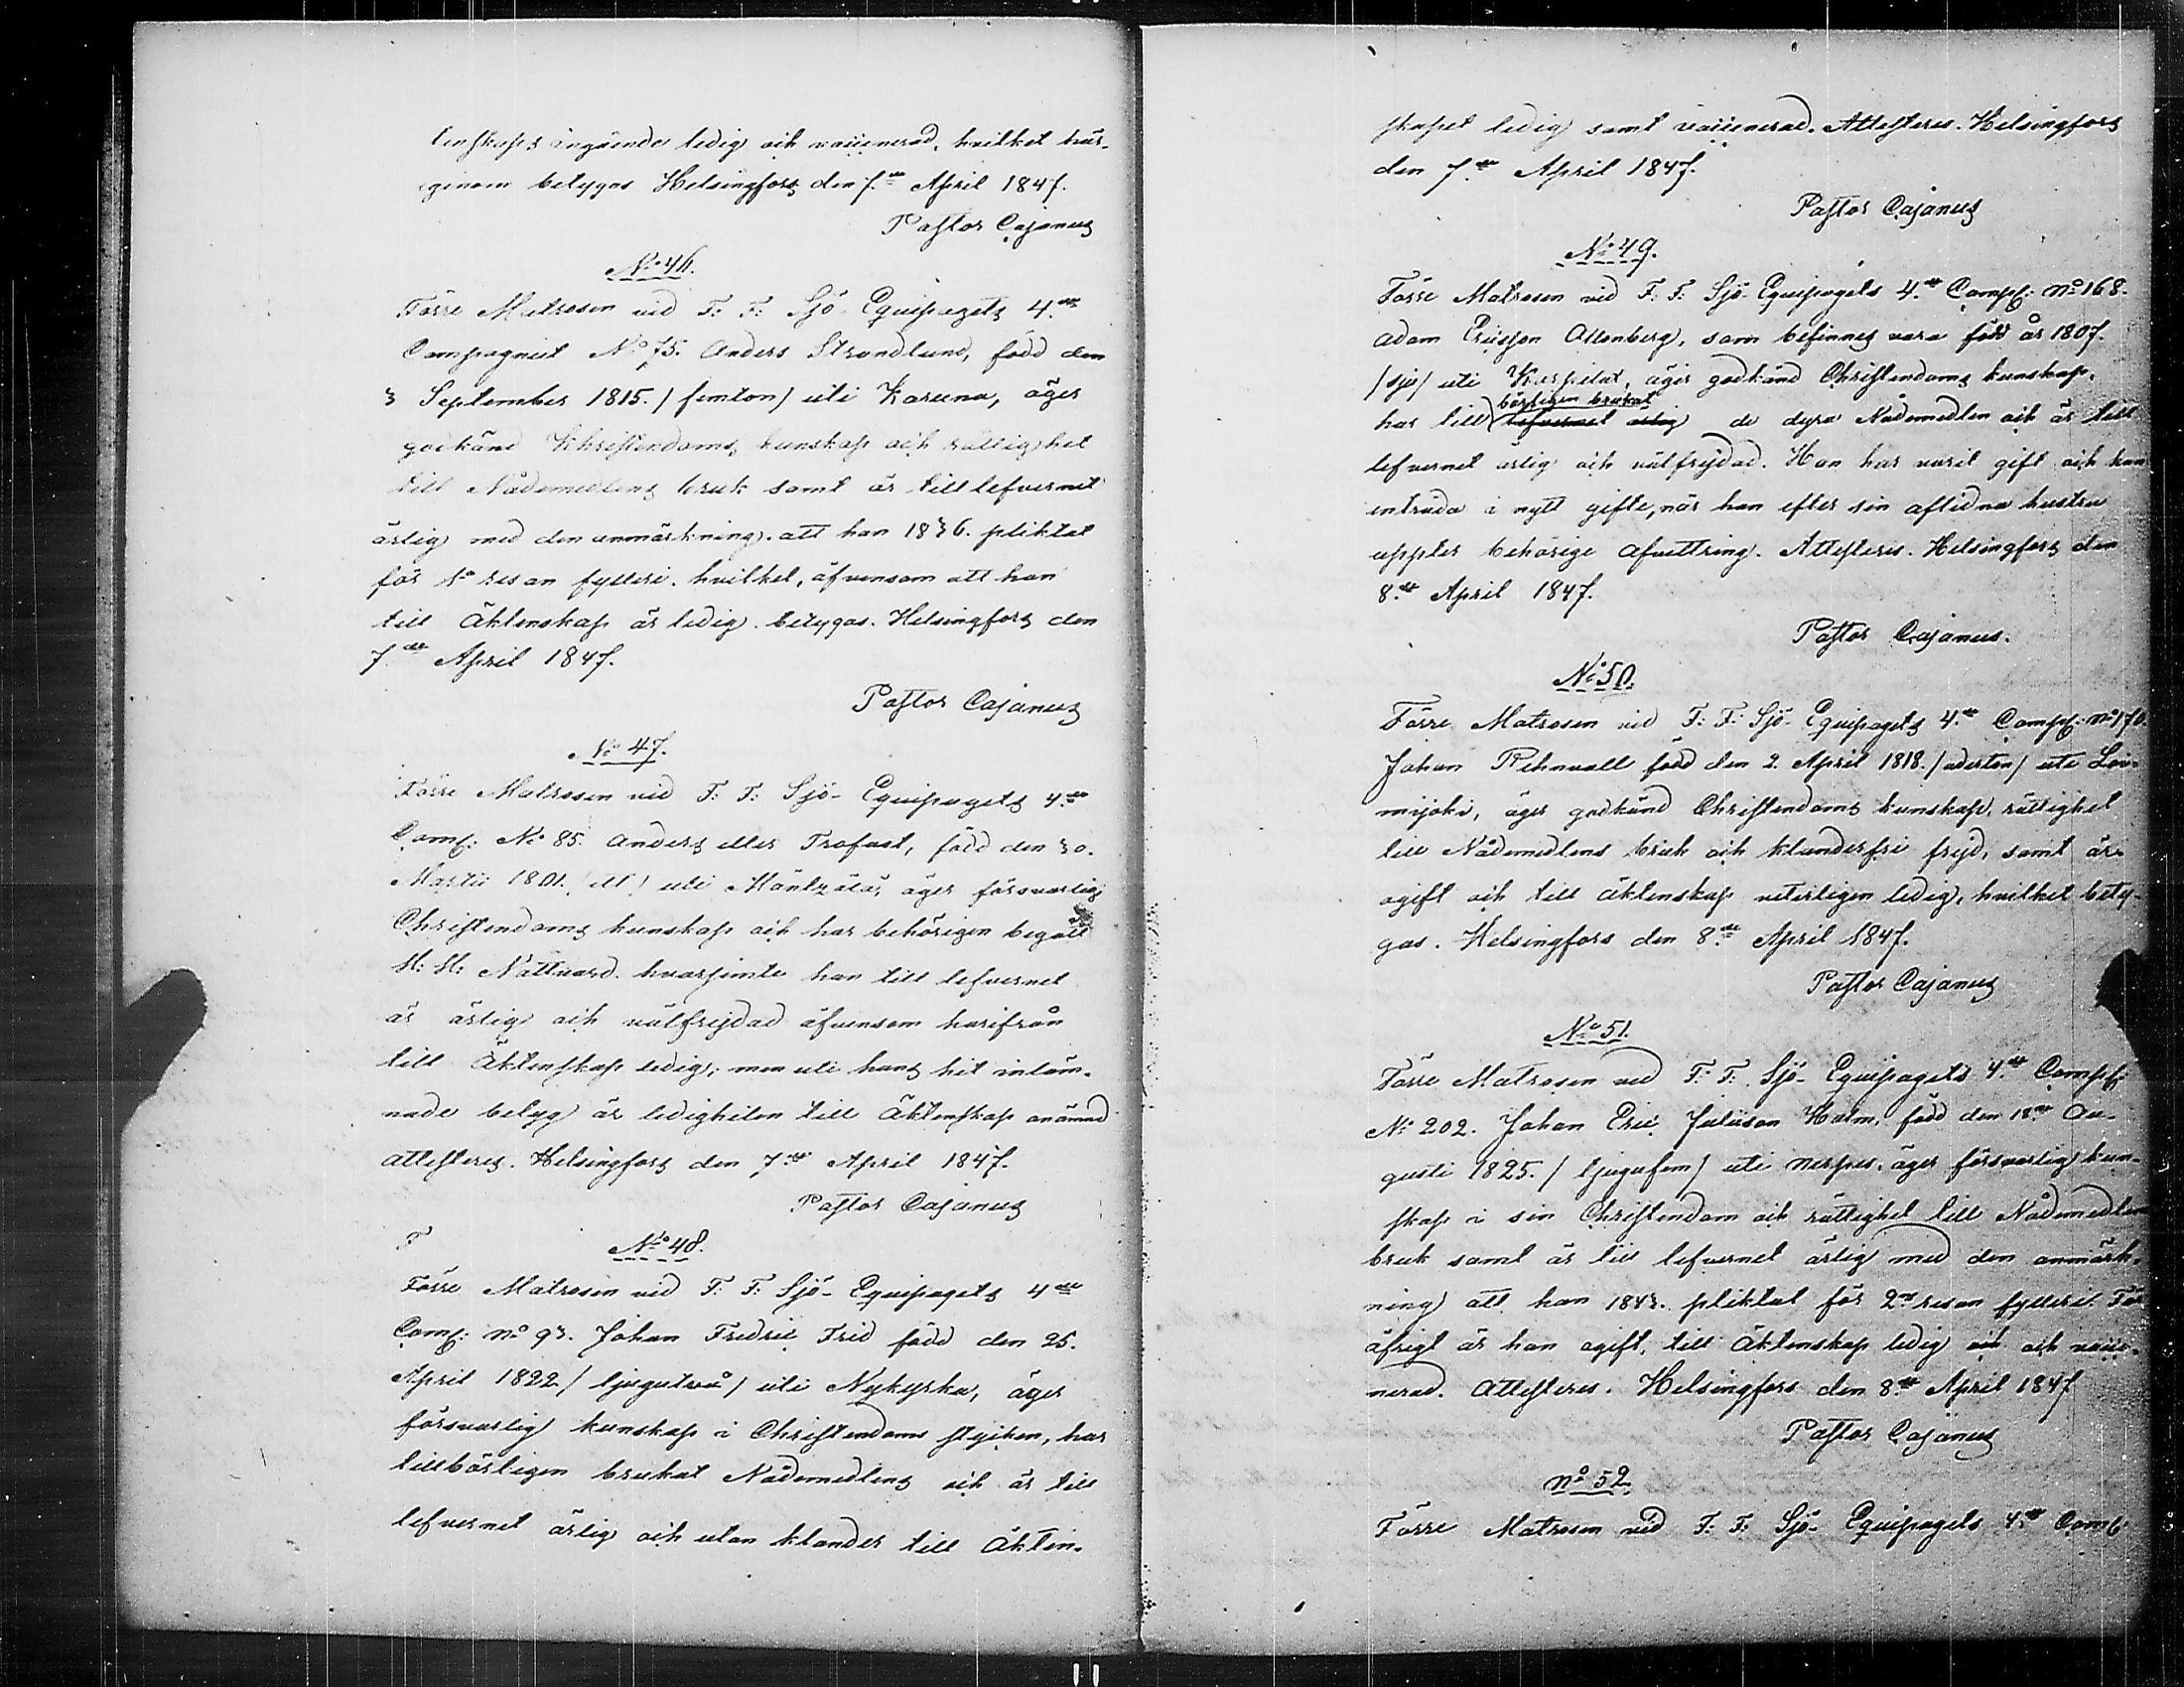 tenskaps ingående ledig och vaccinerad, hvilket här-
genom betygas Helsingfors den 7.de April 1847.
Pastor Cajanus
No 46.
Förre Matrosen vid F: F: Sjö-Equipagets 4.de
Compagniet No 75. Anders Strandlund, född den
3 September 1815. / femton / uti Karuna, äger
godkänd Christendoms kunskap och rättighet
till Nådemedlens bruk samt är till lefvernet
ärlig med den anmärkning, att han 1836. pliktat
för 1a resan fylleri, hvilket, äfvensom att han
till Äktenskap är ledig, betygas. Helsingfors den
7.de April 1847.
Pastor Cajanus
No 47.
Förre Matrosen vid F: F: Sjö-Equipagets 4.de
Comp: No 85. Anders eller Trofast, född den 30.
Martii 1801. / ett / uti Mäntzälä, äger försvarlig
Christendoms kunskap och har behörigen begått
H: H: Nattvard. hvarjemte han till lefvernet
är ärlig och välfrejdad äfvensom härifrån
till Äktenskap ledig; men uti hans hit inläm-
nade betyg är ledigheten till Äktenskap onämnd
Attesteres. Helsingfors den 7.de April 1847.
Pastor Cajanus
F
No 48.
Förre Matrosen vid F: F: Sjö-Equipagets 4.de
Comp: No 93. Johan Fredric Frid född den 25.
April 1822 / tjugutvå / uti Nykyrka, äger
försvarlig kunskap i Christendoms stycken, har
tillbörligen brukat Nådemedlens och är till
lefvernet ärlig och utan klander till Äkten-
skapet ledig samt vaccinerad. Attesteres. Helsingfors
den 7.de April 1847.
Pastor Cajanus
No 49.
Förre Matrosen vid F: F: Sjö-Equipagets 4.de Comp: No 168.
Adam Ericsson Ottenberg, som befinnes vara född år 1807.
/ sju / uti Karpelax, äger godkänd Christendoms kunskap,
börligen brukat
har till lefvernet ärlig de dyra Nådemedlen och är till
lefvernet ärlig och välfrejdad. Han har varit gift och kan
inträda i nytt gifte, när han efter sin aflidna hustru
uppter behörige afvittring. Attesteres. Helsingfors den
8.de April 1847.
Pastor Cajanus.
No 50.
Förre Matrosen vid F: F: Sjö-Equipagets 4.de Comp: No 170.
Johan Rehnvall född den 2. April 1818. / aderton / uti Loi-
mijoki, äger godkänd Christendoms kunskap, rättighet
till Nådemedlens bruk och klanderfri frejd, samt är
ogift och till äktenskap veterligen ledig, hvilket bety-
gas. Helsingfors den 8.de April 1847.
Pastor Cajanus
No 51.
Förre Matrosen vid F: F: Sjö-Equipagets 4.de Comp:
No 202. Johan Eric Juliison Holm, född den 18.de Au-
gusti 1825. / tjugufem / uti Nerpes, äger försvarlig kun-
skap i sin Christendom och rättighet till Nådemedlens
bruk samt är till lefvernet ärlig med den anmärk-
ning att han 1843. pliktat för 2.ra resan fylleri. För
öfrigt är han ogift, till Äktenskap ledig och och vacci-
nerad. Attesteres. Helsingfors den 8.de April 1847
Pastor Cajanus
No 52.
Förre Matrosen vid F: F: Sjö-Equipagets 4.de Comp: